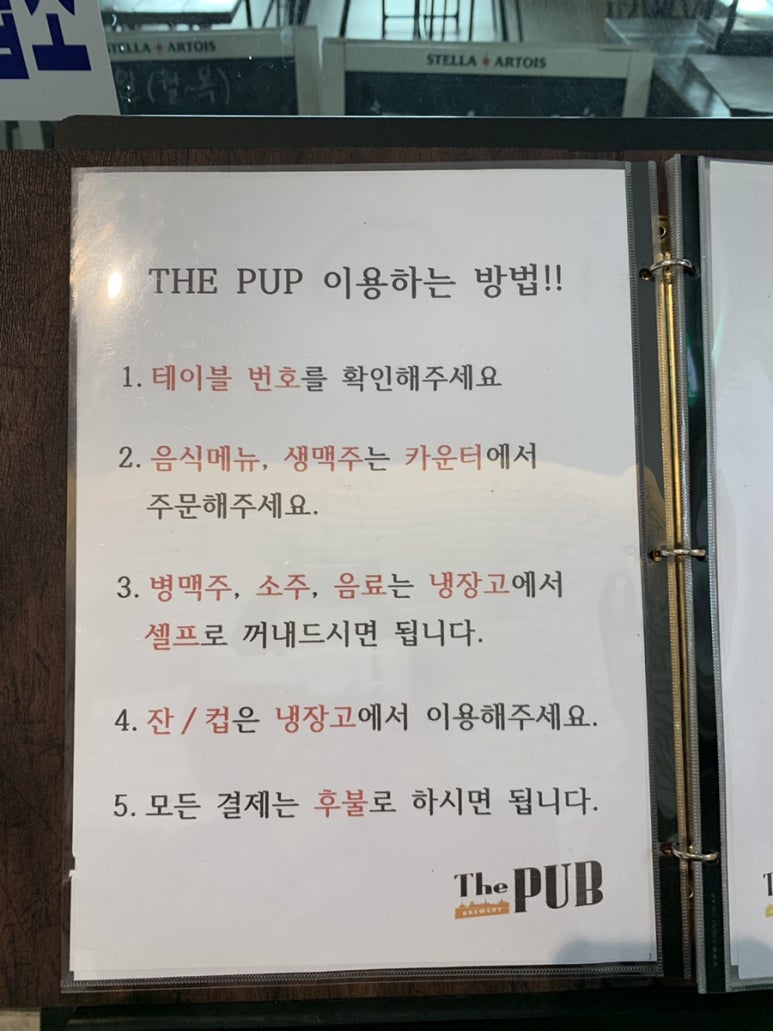 소
STELLA ARTOIS
STELLA ARTOIS
(월~목)
THE PUP 이용하는 방법!!
1. 테이블 번호를 확인해주세요
2. 음식메뉴, 생맥주는 카운터에서
주문해주세요.
3. 병맥주, 소주, 음료는 냉장고에서
셀프로 꺼내드시면 됩니다.
4. 잔 / 컵은 냉장고에서 이용해주세요.
5. 모든 결제는 후불로 하시면 됩니다.
The PUB
BREWERY